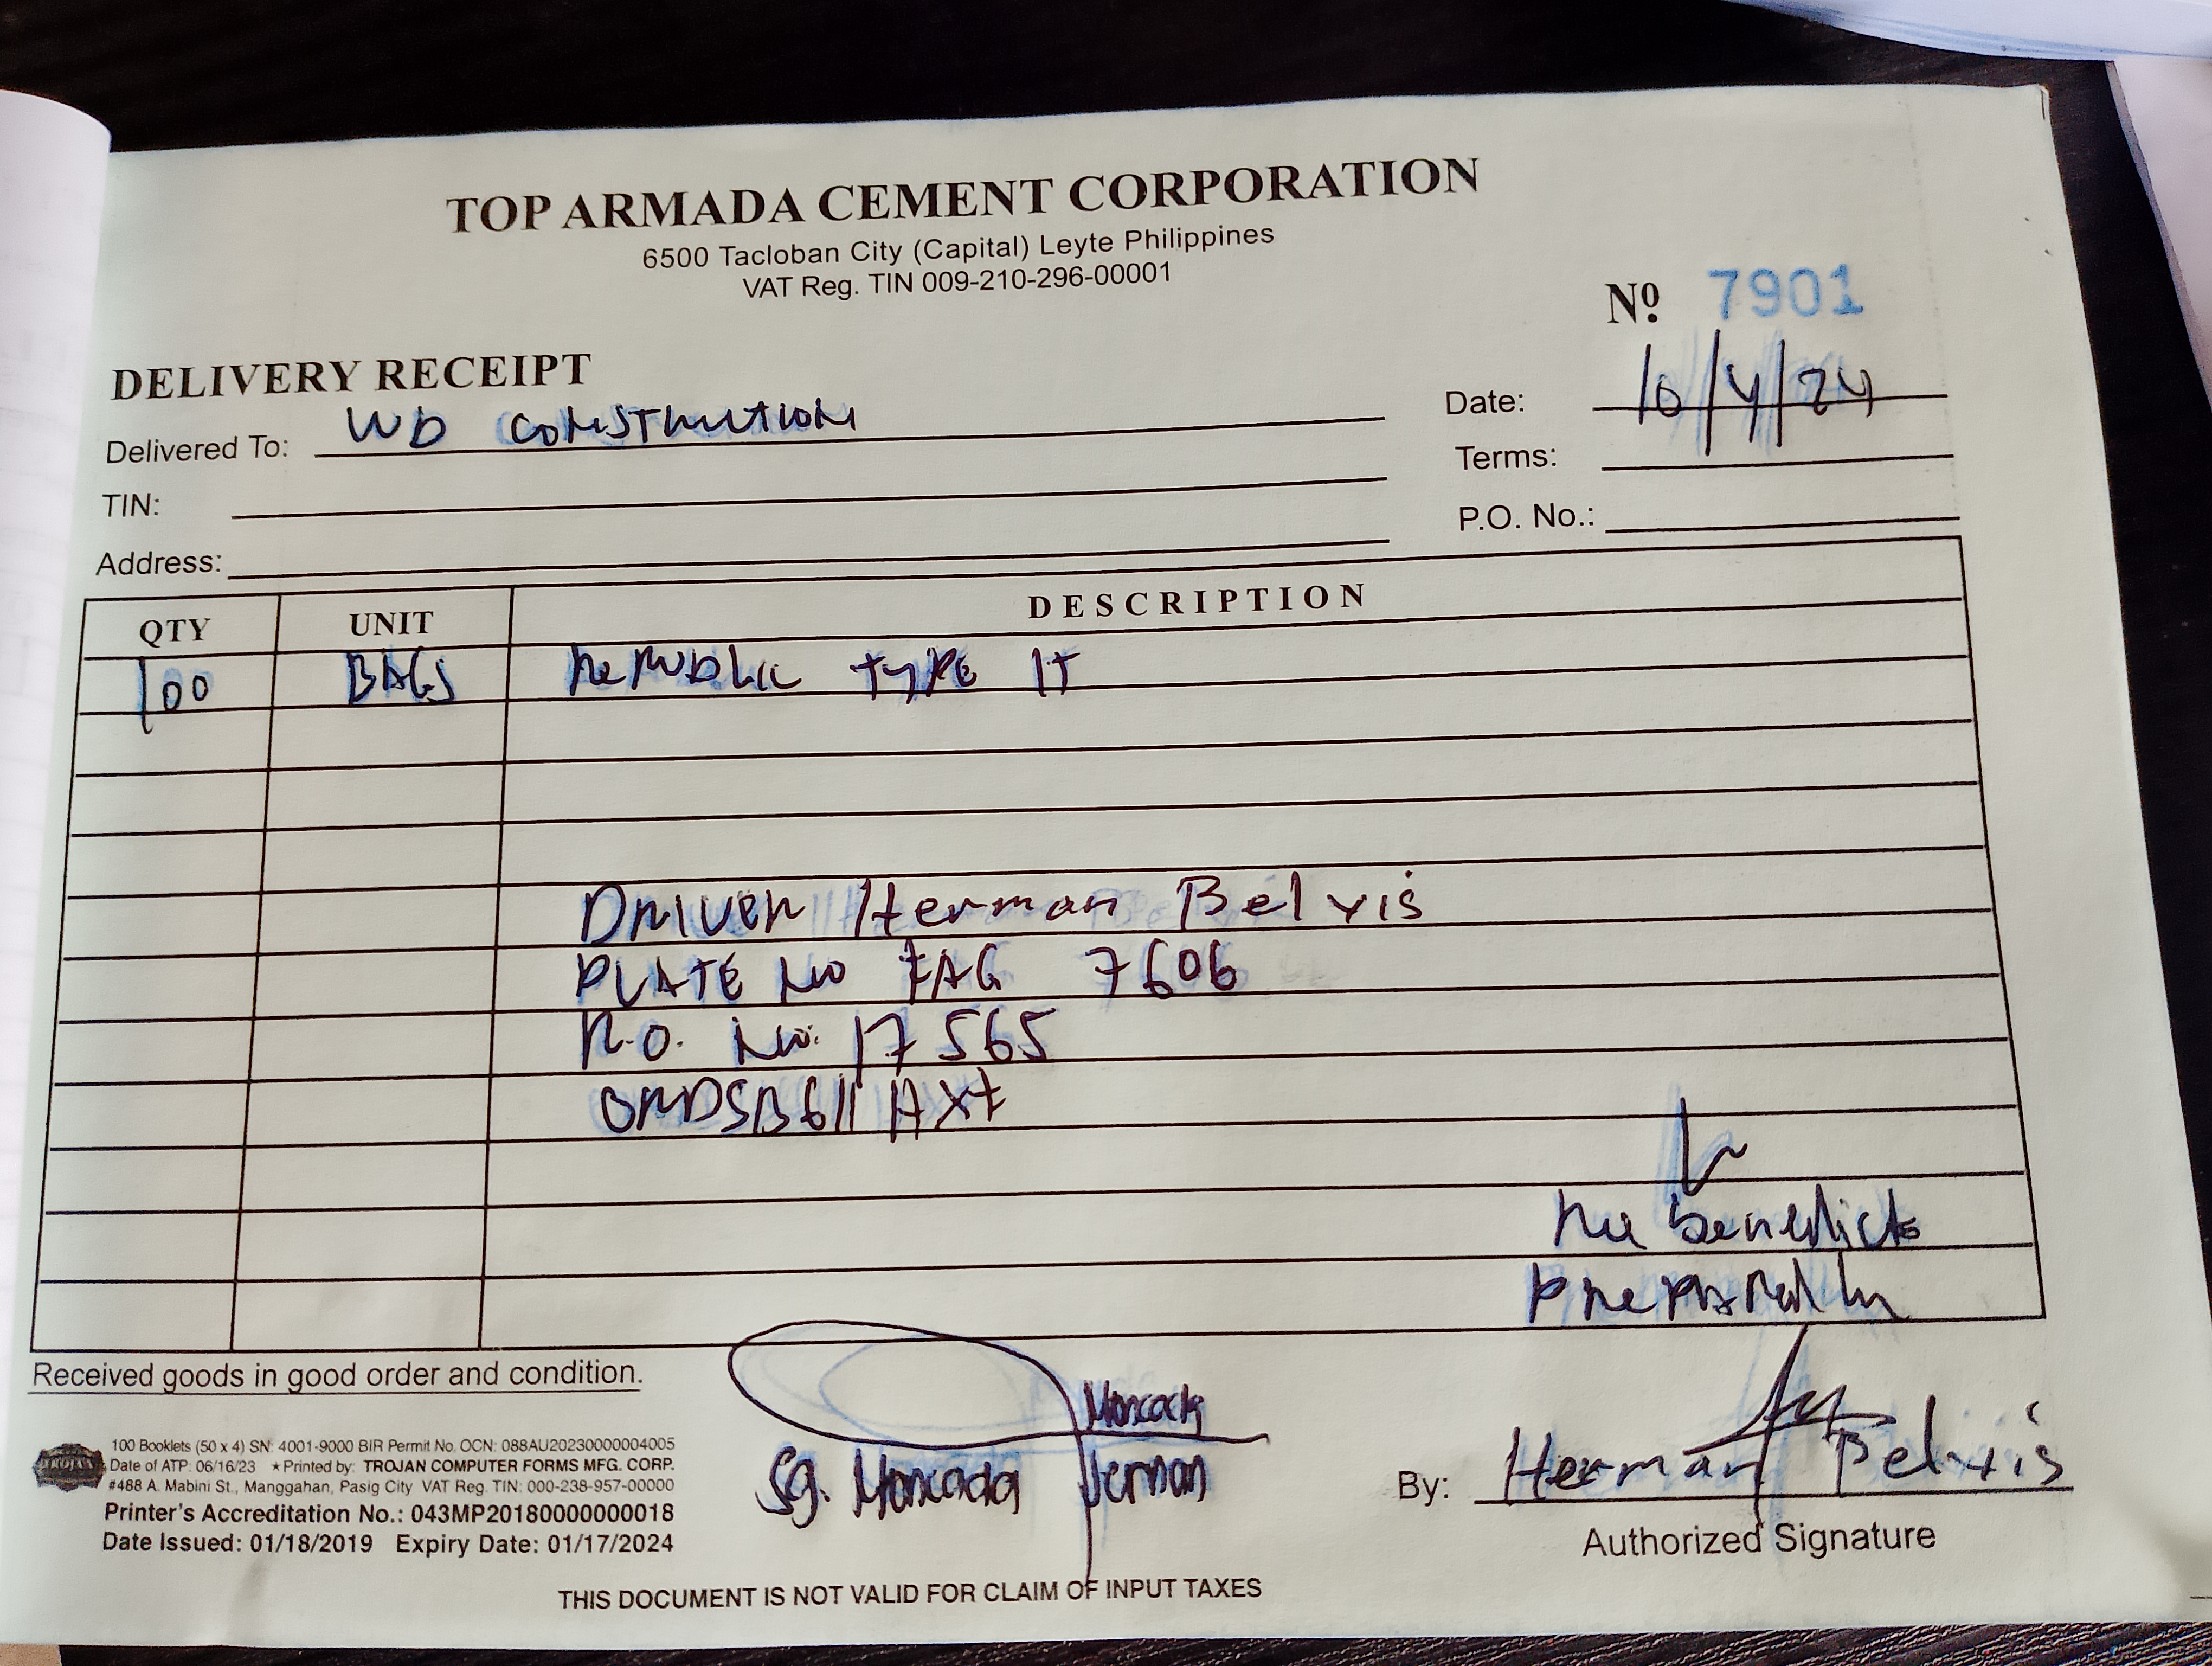 TOP ARMADA CEMENT CORPORATION
6500 Tacloban City (Capital) Leyte Philippines
VAT Reg. TIN 009-210-296-00001
Nº 7901
DELIVERY RECEIPT
Delivered To: WD CONSTRUCTION
Date: 10/4/24
TIN:
Terms:
Address:
P.O. No.:
QTY UNIT DESCRIPTION
100 BAGS REPUBLIC TYPE 1T
DRIVER Herman Belxis
PLATE NO FAG 7606
R.O. NO. 17565
benedicto
Prepared by
Received goods in good order and condition.
Moncada
Sg. Moncada Jernan
By: Herman Belxis
Authorized Signature
TROJAN
100 Booklets (50 x 4) SN: 4001-9000 BIR Permit No. OCN: 088AU20230000004005
Date of ATP: 06/16/23 ★Printed by: TROJAN COMPUTER FORMS MFG. CORP.
#488 A. Mabini St., Manggahan, Pasig City VAT Reg. TIN: 000-238-957-00000
Printer's Accreditation No.: 043MP20180000000018
Date Issued: 01/18/2019 Expiry Date: 01/17/2024
THIS DOCUMENT IS NOT VALID FOR CLAIM OF INPUT TAXES